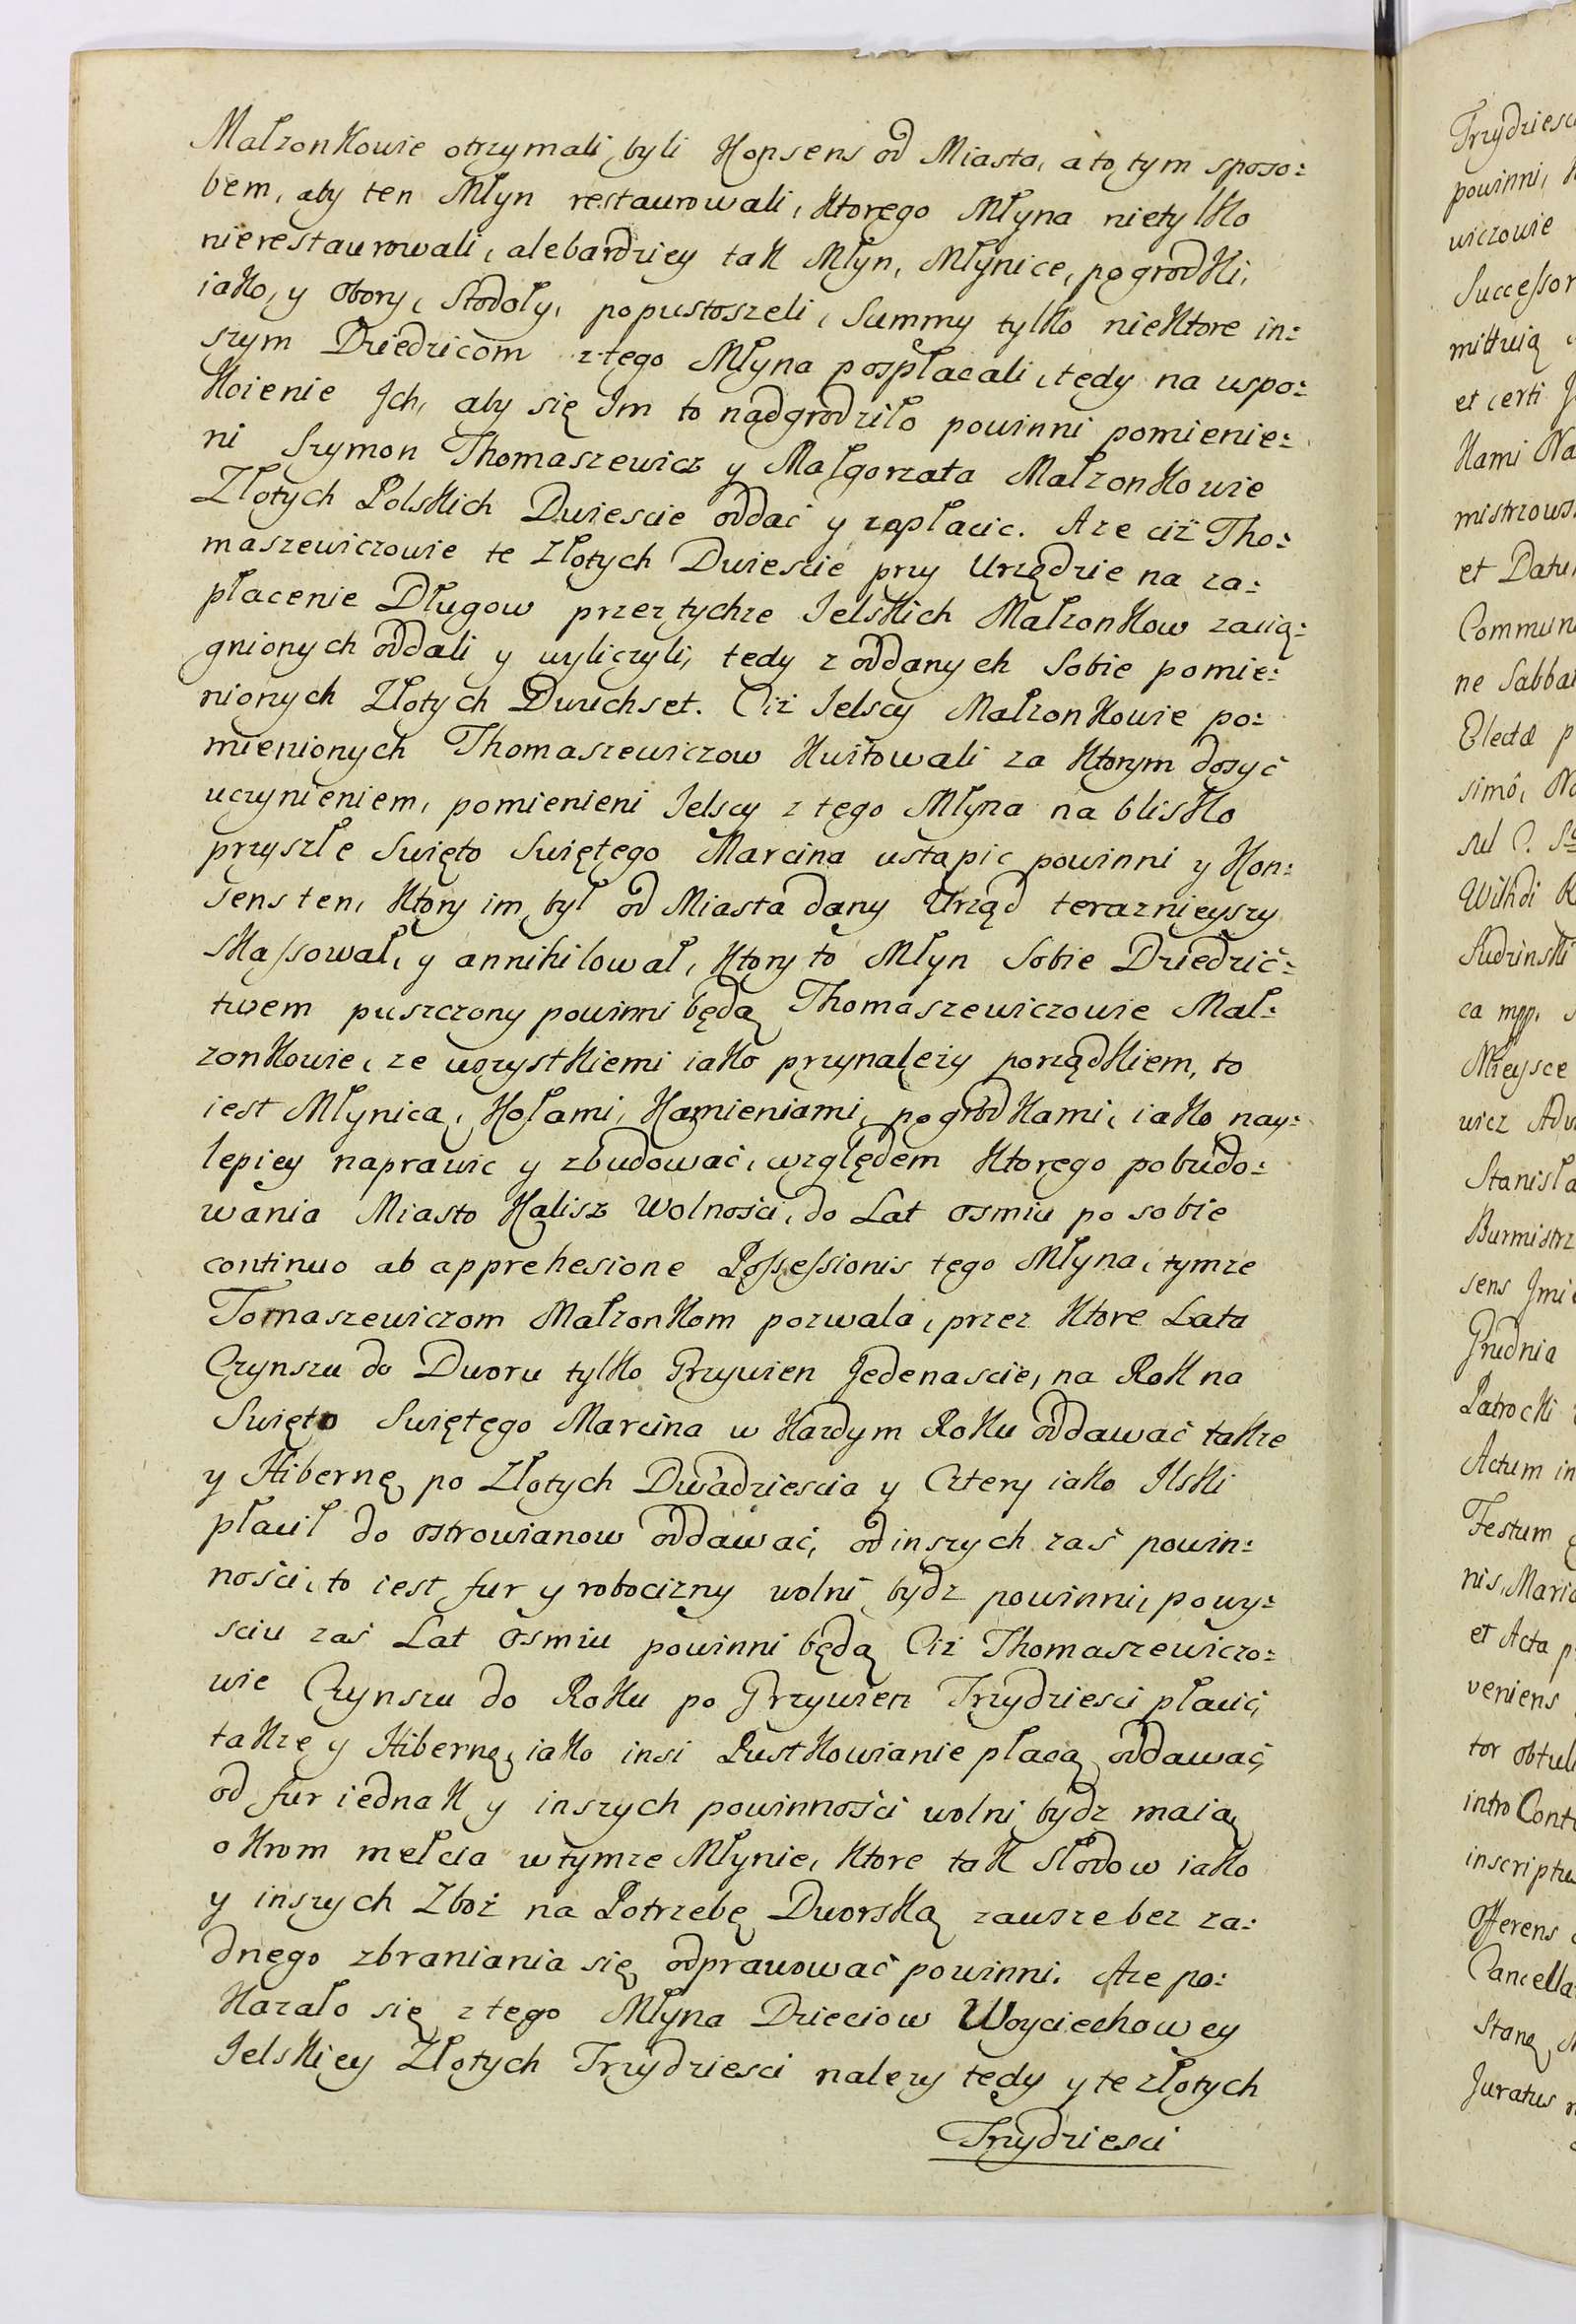 Małzonkowie otrzymali byli Konsens od Miasta, a to tym sposo:
bem, aby ten Młyn restaurowali, ktorego Młyna nietylko
nierestaurowali, alebardziey tak Młyn, Młynice, pogrodki,
iako, y Obory, Stodoły, popustoszeli, Summy tylko niektore in:
szym Dziedzicom z tego Młyna pospłacali, tedy na uspo:
koienie Jch, aby się Im to nadgrodziło powinni pomienie:
ni Szymon Thomaszewicz y Małgorzata Małzonkowie
Złotych Polskich Dwiescie oddać y zapłacic. Aze ciż Tho:
maszewiczowie te Złotych Dwiescie przy Urzędzie na za:
płacenie Długow przez tychze Ielskich Małzonkow zacią:
gnionych oddali y wyliczyli, tedy z oddanych Sobie pomie:
nionych Złotych Dwuchset. Ciż Ielscy Małzonkowie po:
mienionych Thomaszewiczow kwitowali za ktorym dosyć
uczynieniem, pomienieni Ielscy z tego Młyna na blisko
przyszłe Swięto Swiętego Marcina ustąpic powinni y Kon:
sens ten, ktory im był od Miasta dany Urząd terazniejszy
skassował, y annihilował, ktory to Młyn Sobie Dziedzic:
twem puszczony powinni będą Thomaszewiczowie Mał:
zonkowie, ze wszystkiemi iako przynależy porządkiem, to
iest Młynicą, Kołami, Kamieniami, pogrodkami, iako nay:
lepiey naprawic y zbudować, względem ktorego pobudo:
wania Miasto Kalisz Wolności, do Lat osmiu po sobie
continuo ab apprehesione Possessionis tego Młyna, tymze
Tomaszewiczom Małzonkom pozwala, przez ktore Lata
Czynszu do Dworu tylko Grzywien Jedenascie, na Rok na
Swięto Swiętego Marcina w kazdym Roku oddawać takze
y Hibernę po Złotych Dwadziescia y Cztery iako Ilski
płacił do ostrowianow oddawać, od inszych zaś powin:
ności, to iest fur y robocizny wolni bydz powinni, powy:
sciu zaś Lat Osmiu powinni będą Ciż Thomaszewiczo:
wie Czynszu do Roku po Grzywien Trzydziesci płacić,
takze y Hibernę, iako insi Pustkowianie płacą oddawać,
od fur iednak y inszych powinności wolni bydz maią
okrom mełcia w tymze Młynie, ktore tak Słodow iako
y inszych Zboż na Potrzebę Dworską zawsze bez za:
dnego zbraniania się odprawować powinni. Aze po:
kazało się z tego Młyna Dzieciow Woyciechowey
Ielskiey Złotych Trzydziesci nalezy tedy y te złotych
Trzydziesci
Trzydziesci
powinni,
wiczowie
Successor
mittuią
et certi
kami
mistrzows
et Datum
Commun
ne Sabba
Electæ p
simô,
Sudzinski
ca mpp.
Mieysce
wicz Adv
Stanisła
Burmistrz
sens Jmie
Grudnia
Patrocki
Actum in
Festum
nis, Maric
et Acta p
veniens
tor obtul
intro Conte
inscriptu
Offerens
Cancella
Stanę
Juratus